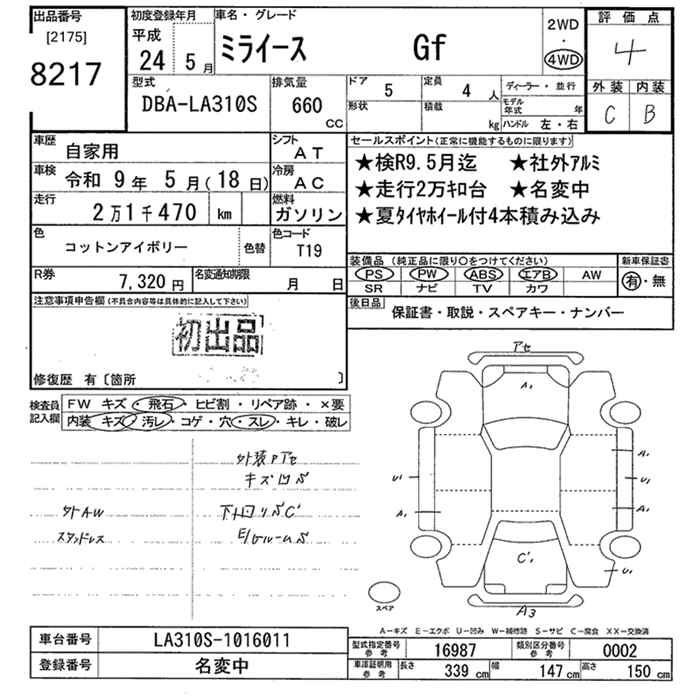 出品番号
[2175]
8217
初度登録年月
平成
24 5月
車名・グレード
ミライース Gf
2WD
・
4WD
評価点
4
外装 内装
C B
型式
DBA-LA310S
排気量
660
CC
ドア
5
定員
4人
形状
積載
kg
ディーラー・並行
モデル年式 年
ハンドル 左・右
車歴
自家用
シフト
AT
車検
令和 9年 5月(18日)
冷房
AC
走行
2万1千470 km
燃料
ガソリン
色
コットンアイボリー
色替
色コード
T19
R券
7,320円
名変通知期限
月 日
セールスポイント(正常に機能するものに限ります)
★検R9.5月迄 ★社外アルミ
★走行2万キロ台 ★名変中
★夏タイヤホイール付4本積み込み
装備品(純正品に限り〇をつけてください)
新車保証書
PS PW ABS エアB AW
SR ナビ TV カワ
有・無
後日品
保証書・取説・スペアキー・ナンバー
注意事項申告欄(不具合内容等は具体的に記入して下さい)
初出品
修復歴 有〔箇所 〕
検査員
記入欄
FW キズ・飛石・ヒビ割・リペア跡・×要
内装 キズ・汚レ・コゲ・穴・スレ・キレ・破レ
外装Pアセ
キズ凹
外AW
スタッドレス
下廻リ
アセ
A1
A1
U1
U1
A1
A1
C'1
U1
スペア
A3
A-キズ E-エクボ U-凹み W-補修跡 S-サビ C-腐食 XX-交換済
車台番号
LA310S-1016011
登録番号
名変中
型式指定番号
参考
16987
類別区分番号
参考
0002
車庫証明用
参考
長さ 339cm 幅 147cm 高さ 150cm